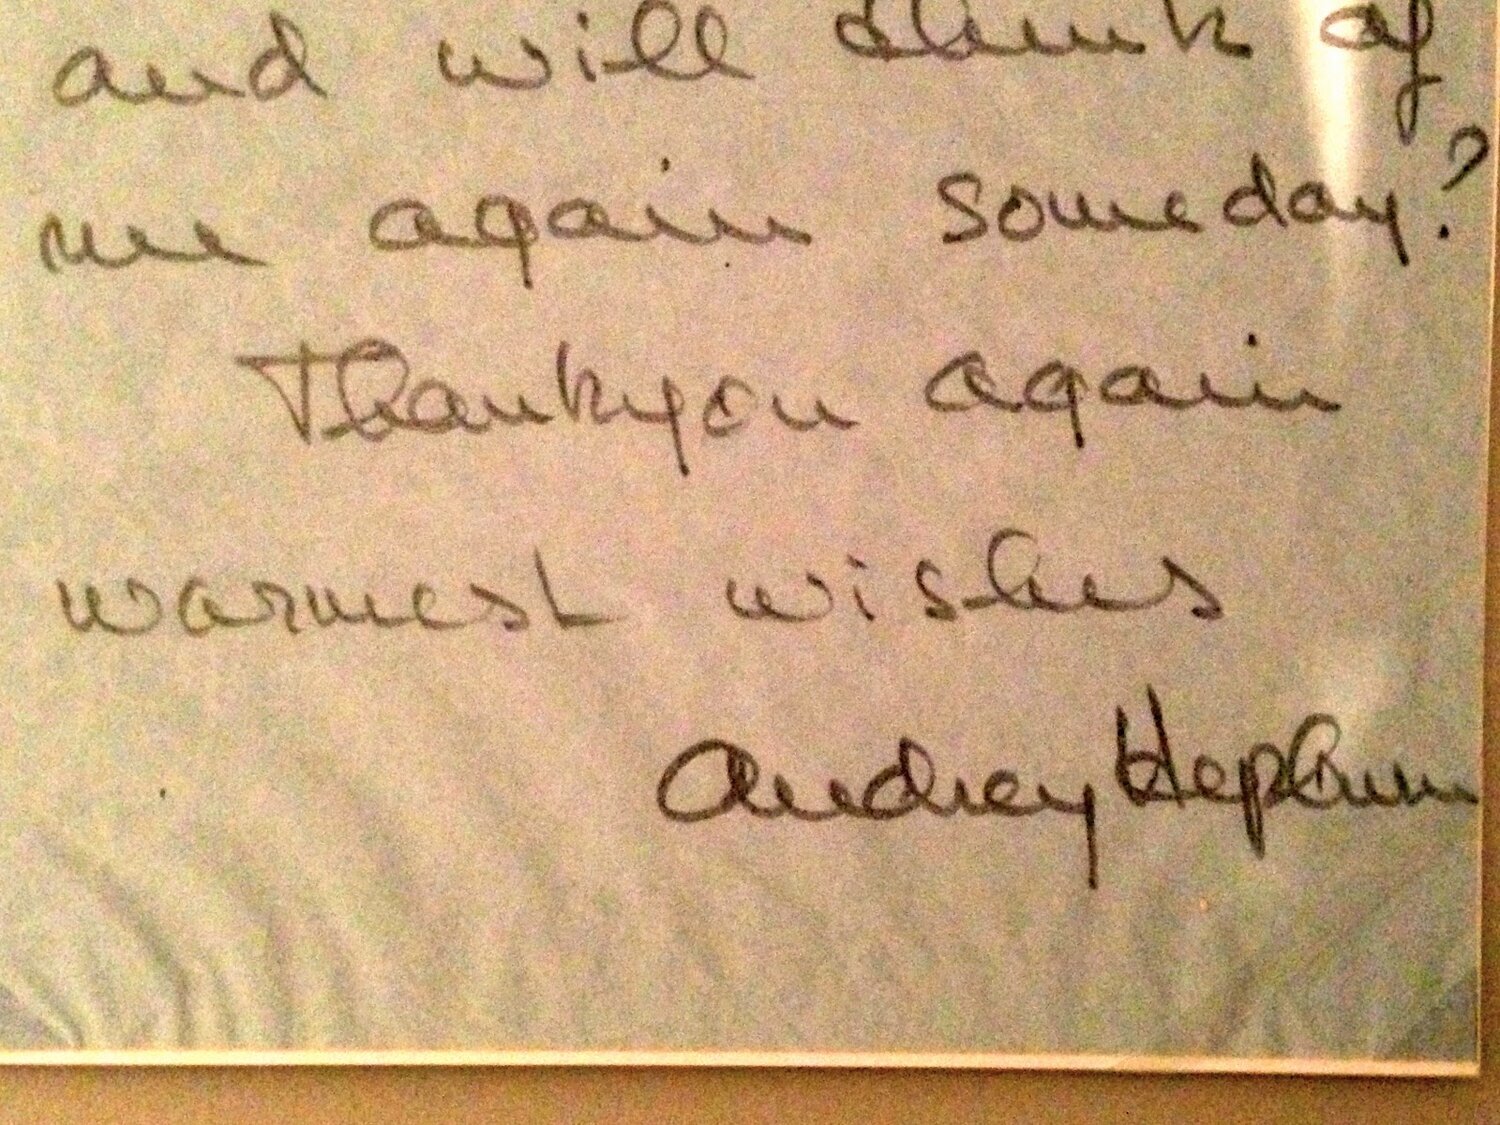 and will think of
me again someday?
Thankyou again
warmest wishes
Audrey Hepburn